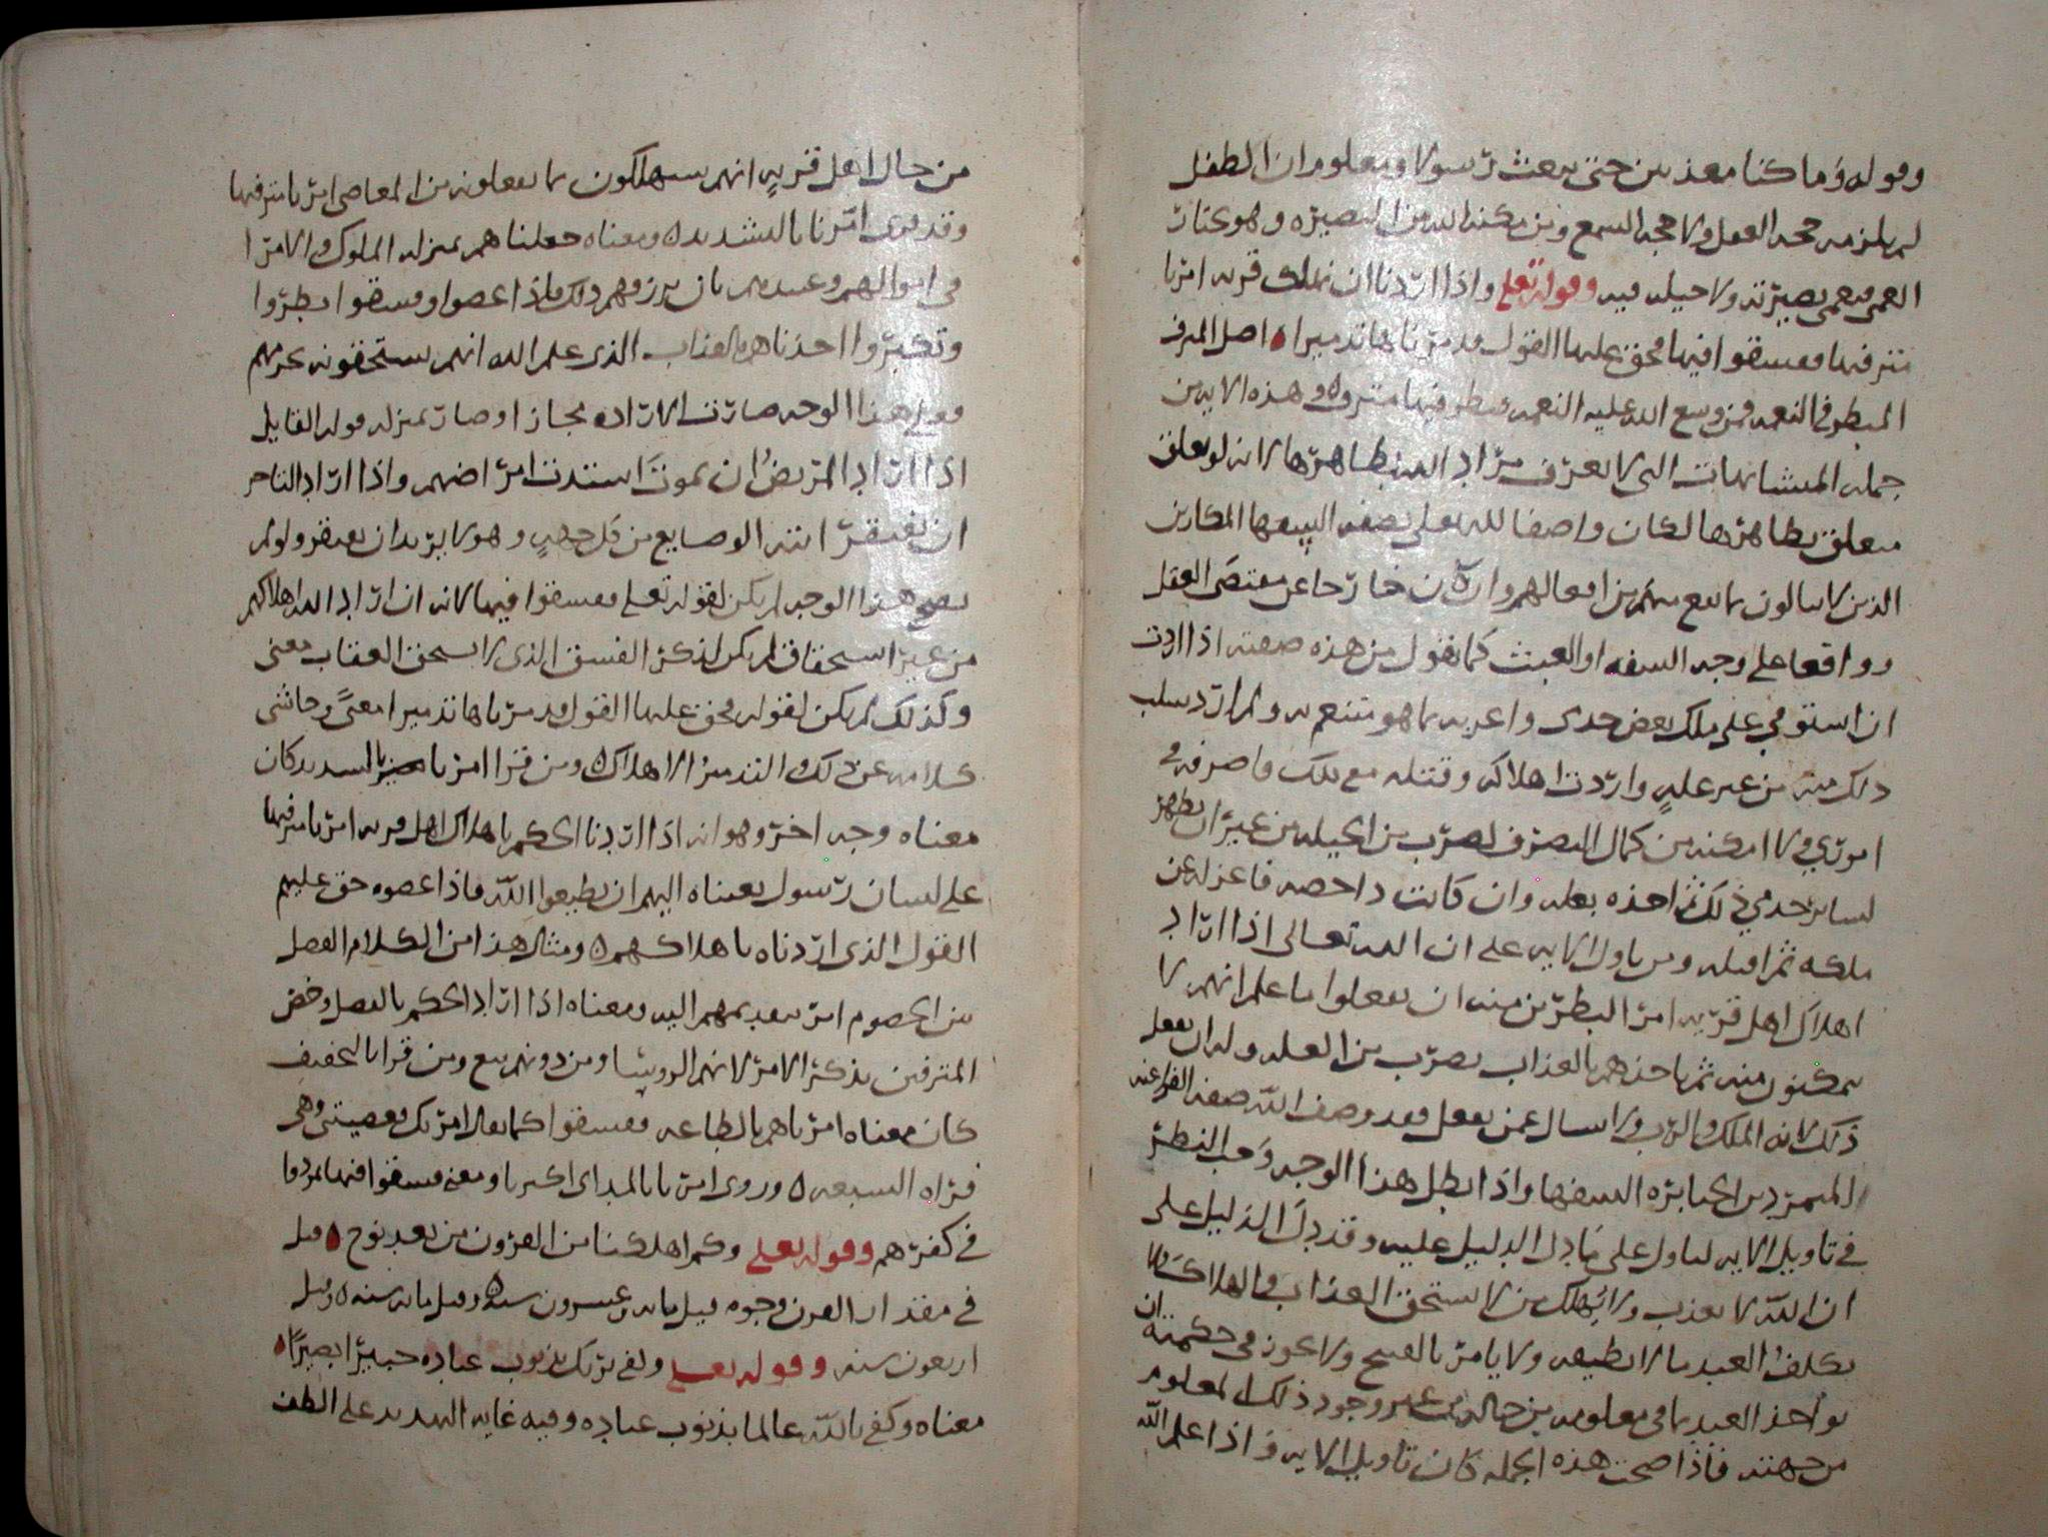 وقوله وما كنا معذبين حتى نبعث رسولا ومعلوم ان الطفل
لم يلزمه حجه العقل ولا حجه السمع ومن مكنه الله من البصيره وهو يختار
العمى فعمى بصيرته ولا حيله فيه وقوله تعلى واذا اردنا ان نهلك قريه امرنا
مترفيها ففسقوا فيها فحق عليها القول فدمرناها تدميرا اصل المترف
المبطر في النعمه فمن وسع الله عليه النعمه فبطر فيها مترف وهذه الايه من
جمله المتشابهات التي لا يعرف مراد الله بظاهرها لانه لو تعلق
متعلق بظاهرها لكان واصفا لله تعلى بصفه السفها المكارين
الذين لا يبالون بما يقع منهم من افعالهم وان كان خارجا عن مقتضى العقل
وواقعا على وجه السفه او العبث كما يقول من هذه صفته اذا اردت
ان استوفي على ملك بعض جندى واغريه بما هو متنعم به ولم ارد سلب
ذلك منه من غير عله واردت اهلاكه وقتله مع ملك ما صرفه في
امرتي ولا امكنه من كمال التصرف لضرب من الحيله من غير ان يظهر
لساير جندي ذلك ثم اخذه بعله وان كانت داحضه فاعزله عن
ملكه ثم اقتله ومن تاول الايه على ان الله تعالى اذا اراد
اهلاك اهل قريه امر البطرين منه ان يفعلوا ما علم انهم لا
يمكنون منه ثم ياخذهم بالعذاب بضرب من العله وله ان يفعل
ذلك لانه الملك والرب ولا يسال عمن يفعل فقد وصف الله صفه الفراعنه
المتمردين الجبابره السفها واذا بطل هذا الوجه وجب النظر
في تاويل الايه لتاول على ما دل الدليل عليه وقد دل الدليل على
ان الله لا يعذب ولا يهلك من لا يستحق العذاب والهلاك ولا
يكلف العبد ما لا يطيقه ولا يامر بالقبيح ولا يجوز في حكمته ان
يواخذ العبد بما في معلومه من حاله من غير وجود ذلك المعلوم
من جهته فاذا صحت هذه الجمله كان تاويل الايه واذا علم الله
من حال اهل قريه انهم سيهلكون بما يفعلونه من المعاصي امرنا مترفيها
وقد قرى امرنا بالتشديد ومعناه جعلناهم بمنزله الملوك والامرا
في اموالهم وعبيدهم بان يرزقهم ذلك فاذا عصوا وفسقوا بطروا
وتكبروا اخذناهم بالعذاب الذي علم الله انهم يستحقونه بجرمهم
فعلى هذا الوجه صارت الاراده مجازا وصار بمنزله قوله القايل
اذا اراد المريض ان يموت اشتدت امراضهم واذا اراد التاجر
ان يفتقر اتته الوضايع من كل جهه وهو لا يريد ان يفتقر ولو لم
يصح هذا الوجه لم يكن لقوله تعلى ففسقوا فيها لانه ان اراد الله اهلاكهم
من غير استحقاق لم يكن لذكر الفسق الذي لا يستحق العقاب معنى
وكذلك لم يكن لقوله فحق عليها القول فدمرناها تدميرا معنى وحاشى
كلامه عن ذلك والتدمير الاهلاك ومن قرا امرنا بالتشديد كان
معناه وجه اخر وهو انه اذا اردنا الحكم باهلاك اهل قريه امرنا مترفيها
على لسان رسول بعثناه اليهم ان يطيعوا الله فاذا عصوه حق عليهم
القول الذي اردناه باهلاكهم ومثال هذا من الكلام الفصل
بين الخصوم امر بتقديمهم اليه ومعناه اذا اراد الحكم بالفصل وخص
المترفين بذكر الامر لانهم الروسا ومن دونهم تبع ومن قرا بالتخفيف
كان معناه امرناهم بالطاعه ففسقوا كما يقال امرتك فعصيتني وهي
قراه السبعه وروى امرنا بالمد اى اكثرنا ومعنى ففسقوا فيها تمردوا
في كفرهم وقوله تعلى وكم اهلكنا من القرون من بعد نوح قيل
في مقدار القرن وجوه قيل مايه وعشرون سنه وقيل مايه سنه وقيل
اربعون سنه وقوله تعلى وكفى بربك بذنوب عباده خبيرا بصيرا
معناه وكفى بالله عالما بذنوب عباده وفيه غايه التهديد على الطف